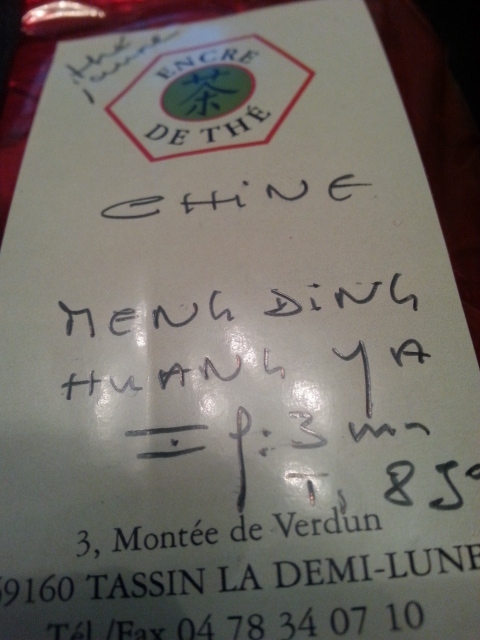 thé
jaune
ENCRE
茶
DE THÉ
CHINE
MENG DING
HUANG YA
3 mn
85°
3, Montée de Verdun
69160 TASSIN LA DEMI-LUNE
Tél./Fax 04 78 34 07 10